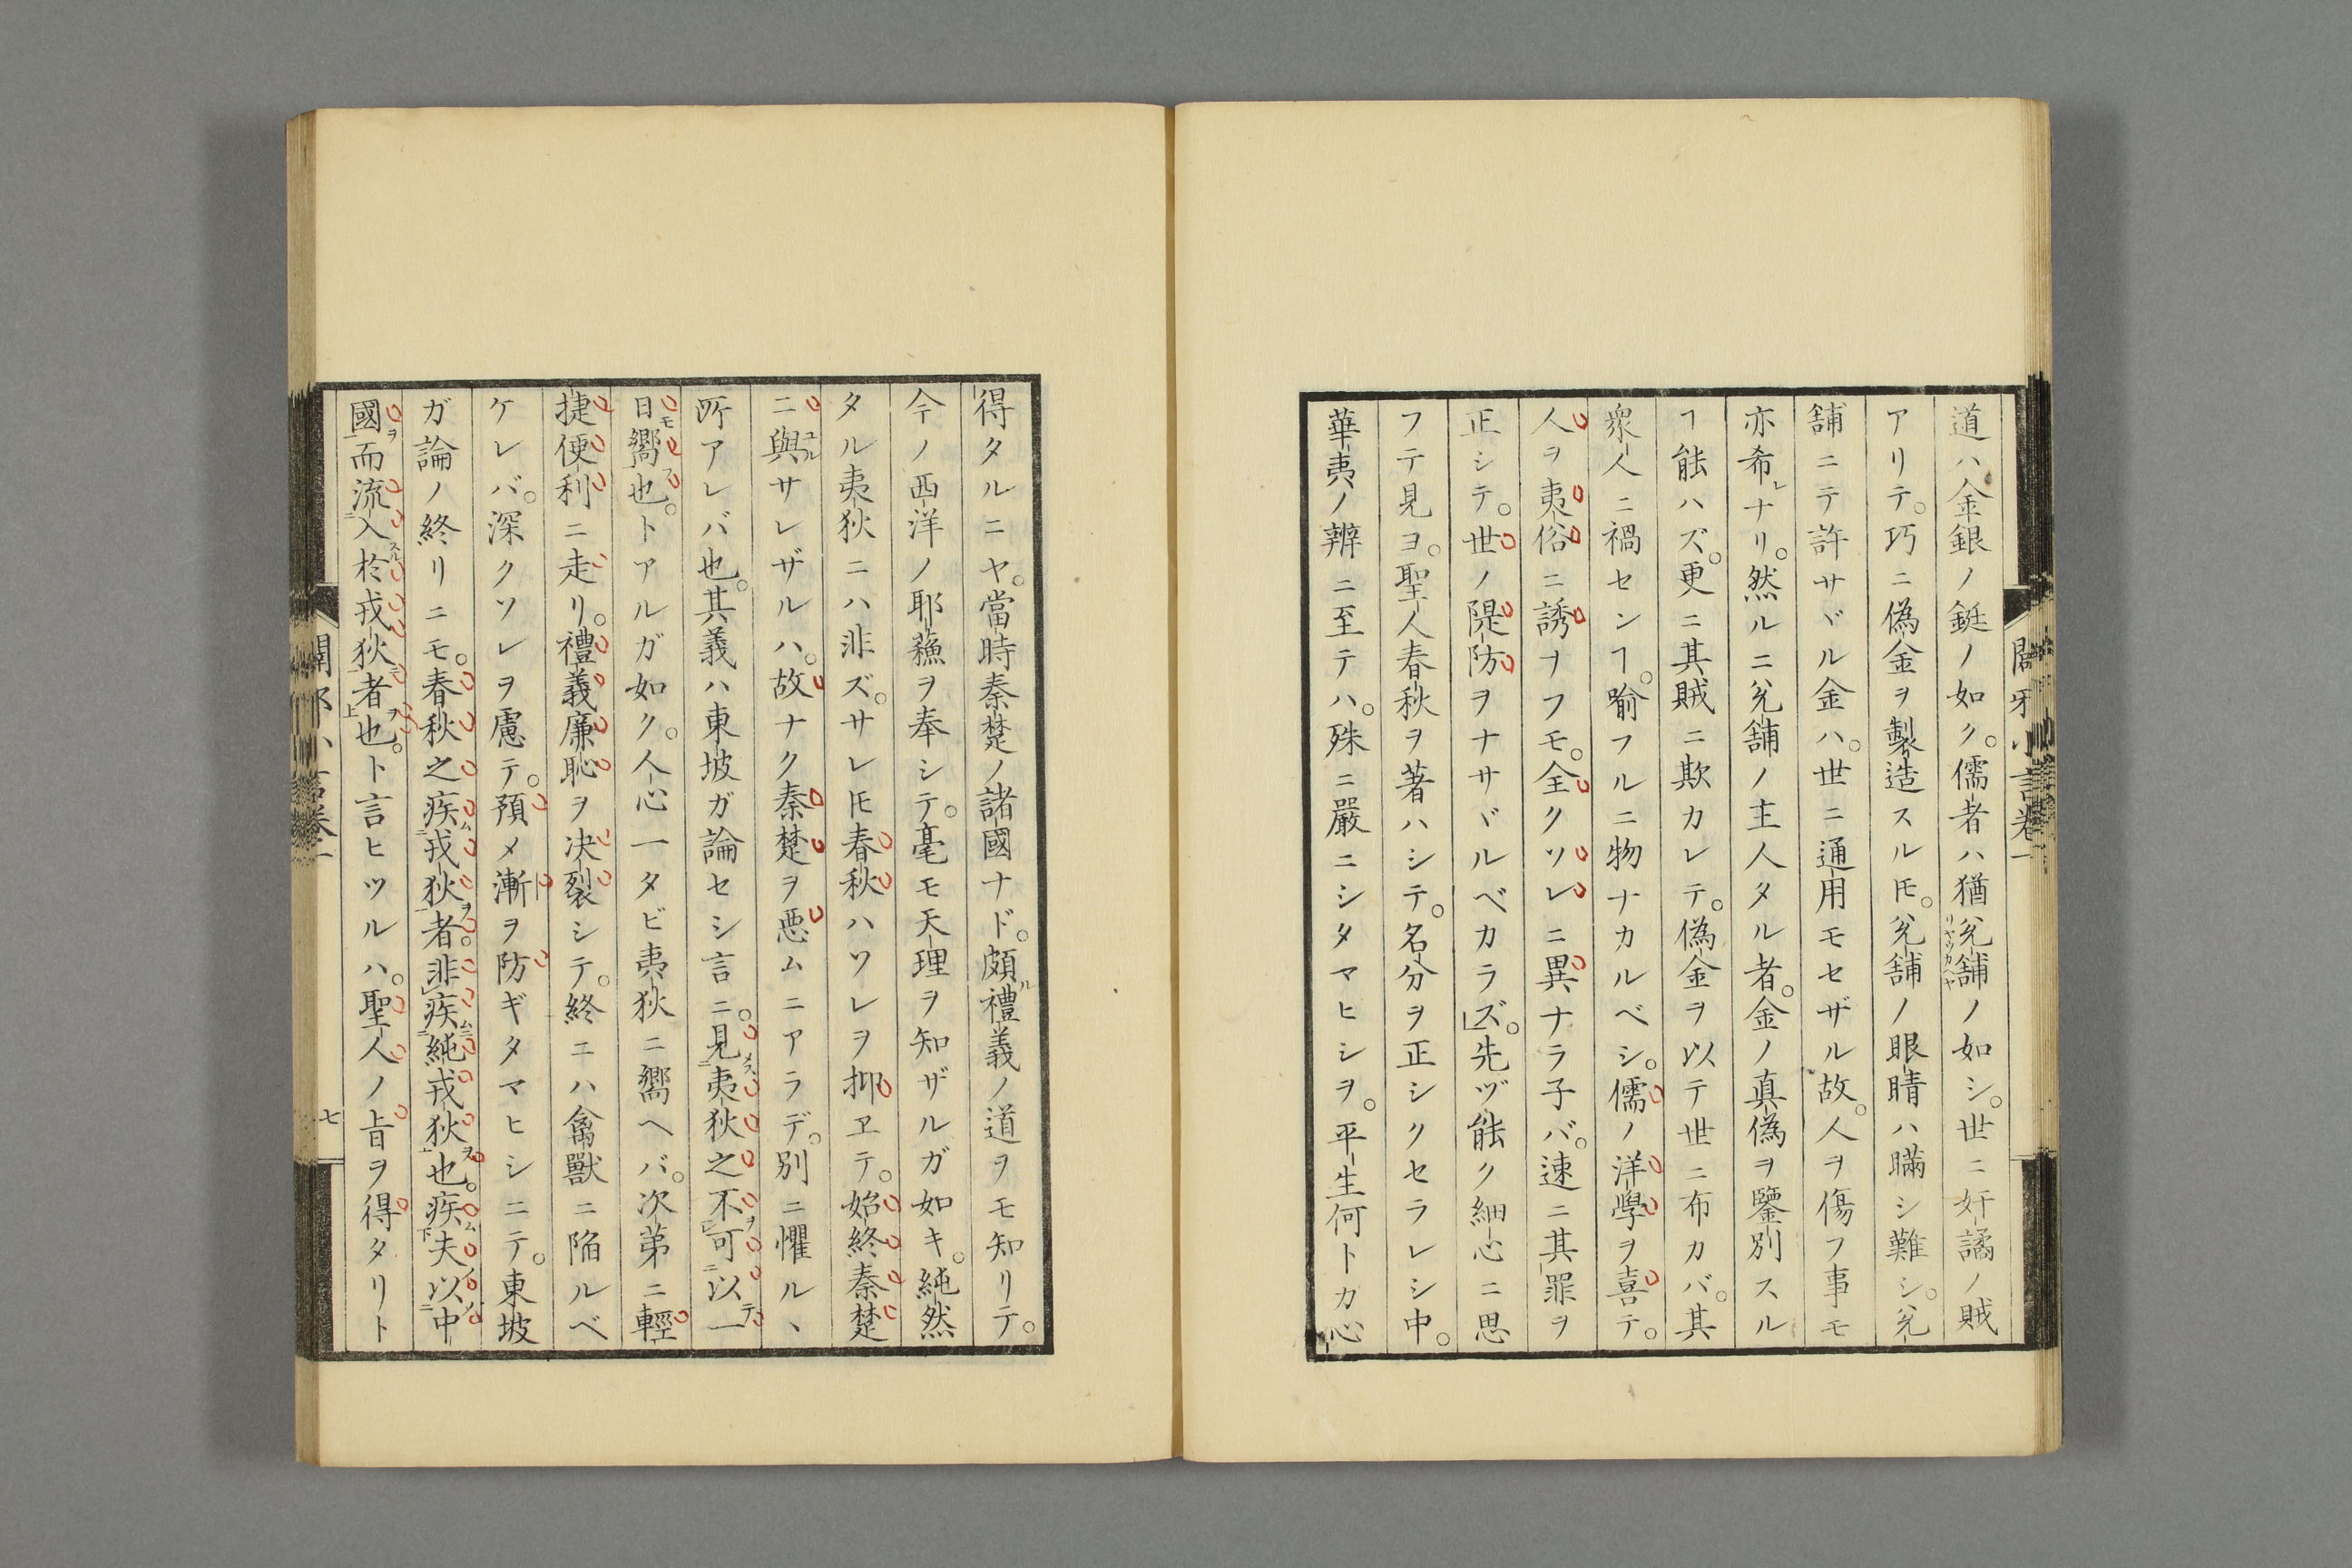 道ハ金銀ノ鋌ノ如ク。儒者ハ猶兊舗ノ如シ。世ニ奸譎ノ賊
アリテ。巧ニ偽金ヲ製造スルモ。兊舗ノ眼睛ハ瞞シ難シ。兊
舗ニテ許サヾル金ハ。世ニ通用モセザル故。人ヲ傷フ事モ
亦希レナリ。然ルニ兊舗ノ主人タル者。金ノ真偽ヲ鑒別スル
ヿ能ハズ。更ニ其賊ニ欺カレテ。偽金ヲ以テ世ニ布カバ。其
衆人ニ禍センヿ。喻フルニ物ナカルベシ。儒ノ洋學ヲ喜テ。
人ヲ夷俗ニ誘ヲフモ。全クソレニ異ナラ子バ。速ニ其罪ヲ
正シテ。世ノ隄防ヲナサヾルベカラズ。」先ヅ能ク細心ニ思
フテ見ヨ。聖人春秋ヲ著ハシテ。名分ヲ正シクセラレシ中。
華夷ノ辨ニ至テハ。殊ニ嚴ニシタマヒシヲ。平生何トカ心
得タルニヤ。當時秦楚ノ諸國ナド。頗ル禮義ノ道ヲモ知リテ。
今ノ西洋ノ耶蘓ヲ奉シテ。毫モ天理ヲ知ザルガ如キ。純然
タル夷狄ニハ非ズ。サレ𪜈春秋ハソレヲ抑ヱテ。始終秦楚
ニ與ユルサレザルハ。故ナク秦楚ヲ惡ムニアラデ。別ニ懼ルヽ
所アレバ也。其義ハ東坡ガ論セシ言ニ。見夷狄之不可以一
日嚮也。トアルガ如ク。人心一タビ夷狄ニ嚮ヘバ。次第ニ輕
捷便利ニ走リ。禮義廉恥ヲ决裂シテ。終ニハ禽獸ニ陥ルベ
ケレバ。深クソレヲ慮テ。預メ漸ヲ防ギタマヒシニテ。東坡
ガ論ノ終リニモ。春秋之疾戎狄者。非疾純戎狄也。疾夫以中
國而流入於戎狄者也。ト言ヒツルハ。聖人ノ旨ヲ得タリト
闢邪小言卷一
七